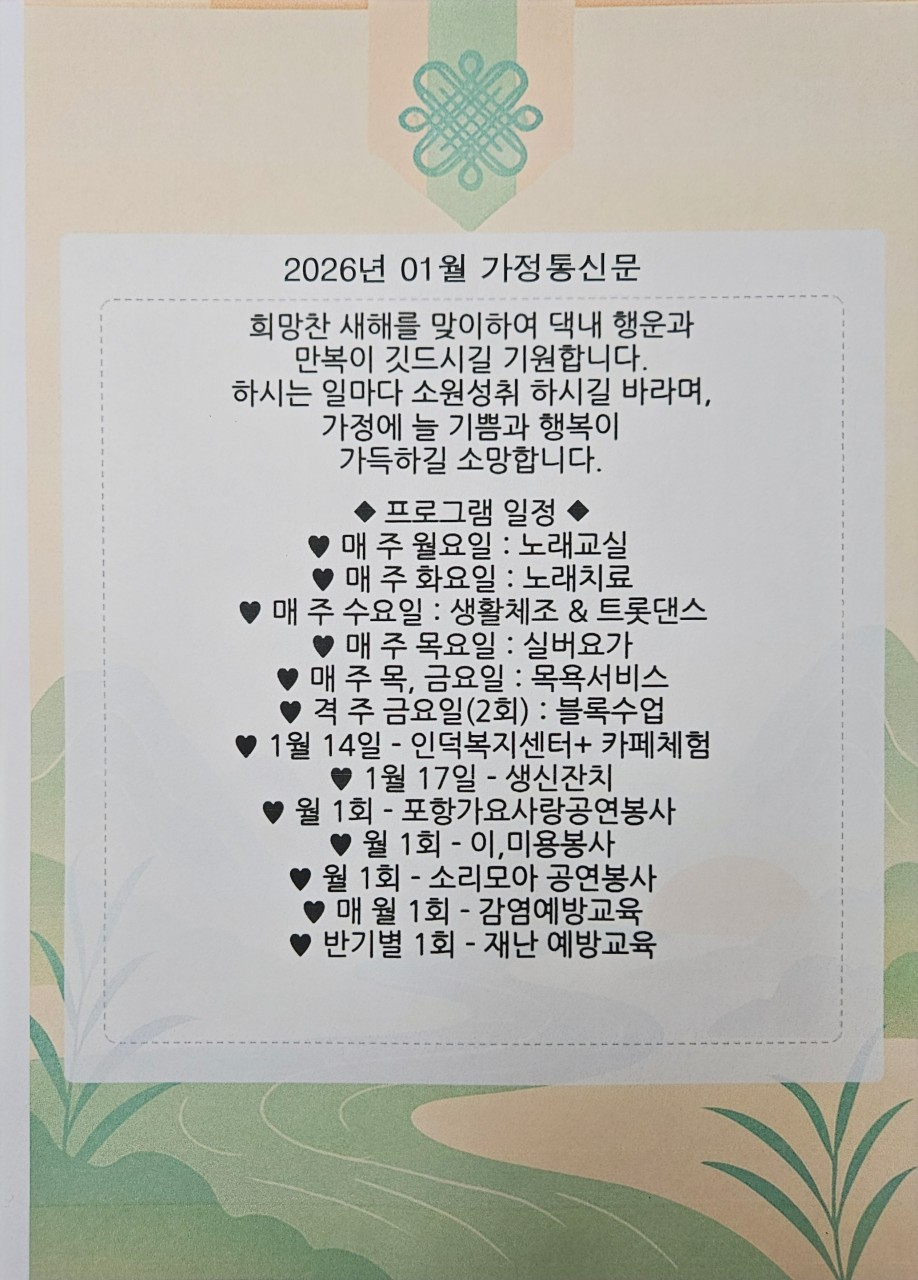 2026년 01월 가정통신문
희망찬 새해를 맞이하여 댁내 행운과
만복이 깃드시길 기원합니다.
하시는 일마다 소원성취 하시길 바라며,
가정에 늘 기쁨과 행복이
가득하길 소망합니다.
◆ 프로그램 일정 ◆
♥ 매 주 월요일 : 노래교실
♥ 매 주 화요일 : 노래치료
♥ 매 주 수요일 : 생활체조 & 트롯댄스
♥ 매 주 목요일 : 실버요가
♥ 매 주 목, 금요일 : 목욕서비스
♥ 격 주 금요일(2회) : 블록수업
♥ 1월 14일 - 인덕복지센터+ 카페체험
♥ 1월 17일 - 생신잔치
♥ 월 1회 - 포항가요사랑공연봉사
♥ 월 1회 - 이,미용봉사
♥ 월 1회 - 소리모아 공연봉사
♥ 매 월 1회 - 감염예방교육
♥ 반기별 1회 - 재난 예방교육